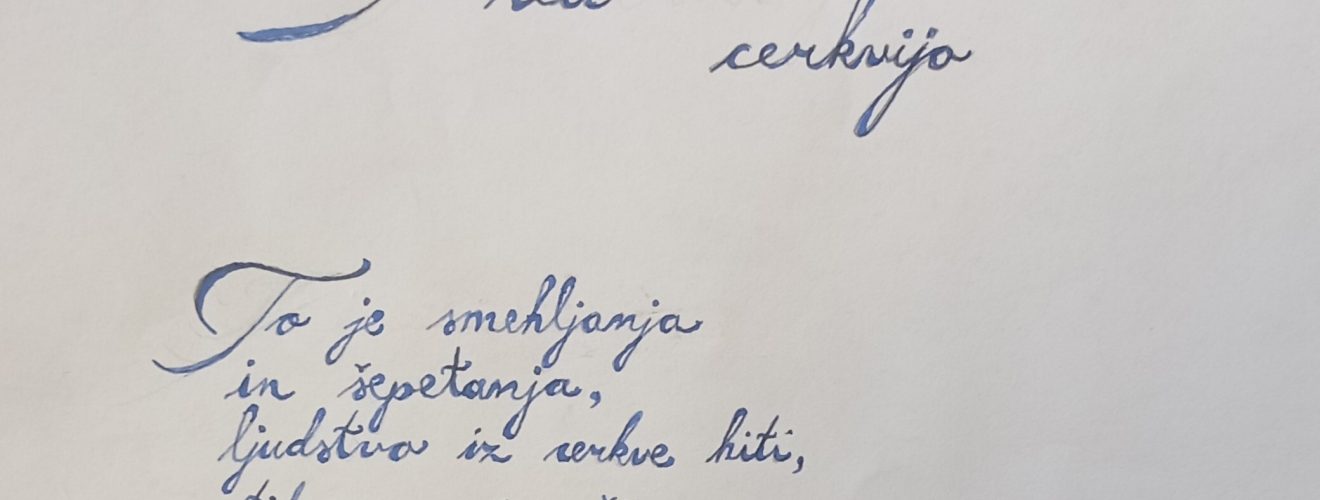 cerkvijo
To je smehljanja
in šepetanja,
ljudstvo iz cerkve hiti,